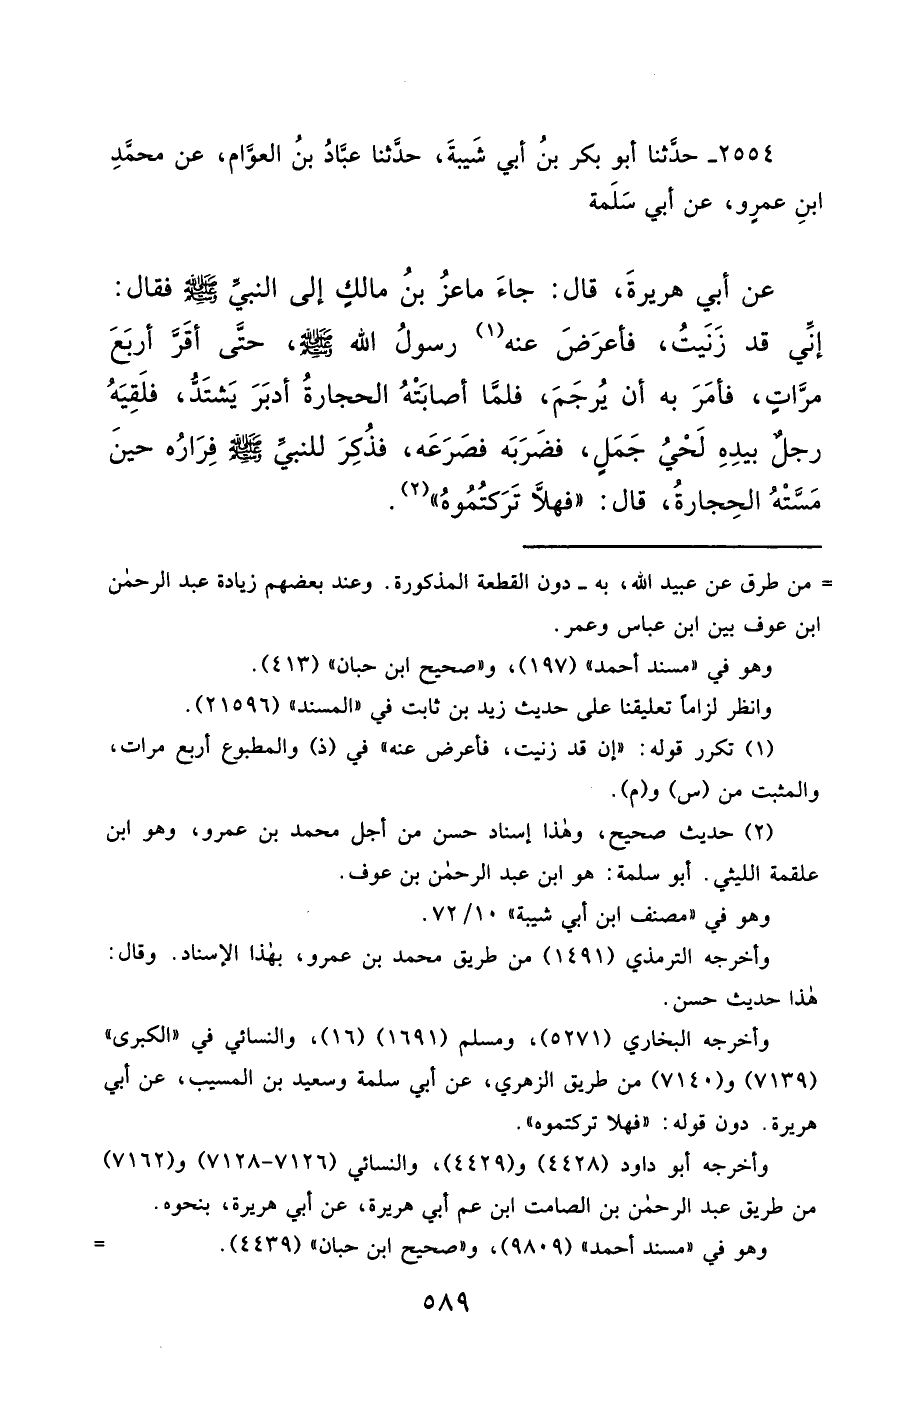 ٢٥٥٤ـ حدَّثنا أبو بكر بنُ أبي شَيبةَ، حدَّثنا عبَّادُ بنُ العوَّام، عن محمَّدِ
ابنِ عمرٍو، عن أبي سَلَمة
عن أبي هريرةَ، قال: جاءَ ماعزُ بنُ مالكٍ إلى النبيِّ ﷺ فقال:
إنِّي قد زَنَيتُ، فأعرَضَ عنه(١) رسولُ الله ﷺ، حتَّى أقَرَّ أربَعَ
مرَّاتٍ، فأمَرَ به أن يُرجَمَ، فلمَّا أصابَتْهُ الحجارةُ أدبَرَ يَشتَدُّ، فلَقِيَهُ
رجلٌ بيدِهِ لَحْيُ جَمَلٍ، فضَرَبَه فصَرَعَه، فذُكِرَ للنبيِّ ﷺ فِرَارُه حينَ
مَسَّتْهُ الحِجارةُ، قال: «فهلاَّ تَرَكتُمُوهُ»(٢).
= من طرق عن عبيد الله، به ـ دون القطعة المذكورة. وعند بعضهم زيادة عبد الرحمٰن
ابن عوف بين ابن عباس وعمر.
وهو في «مسند أحمد» (١٩٧)، و«صحيح ابن حبان» (٤١٣).
وانظر لزاماً تعليقنا على حديث زيد بن ثابت في «المسند» (٢١٥٩٦).
(١) تكرر قوله: «إن قد زنيت، فأعرض عنه» في (ذ) والمطبوع أربع مرات،
والمثبت من (س) و(م).
(٢) حديث صحيح، وهٰذا إسناد حسن من أجل محمد بن عمرو، وهو ابن
علقمة الليثي. أبو سلمة: هو ابن عبد الرحمٰن بن عوف.
وهو في «مصنف ابن أبي شيبة» ١٠/ ٧٢.
وأخرجه الترمذي (١٤٩١) من طريق محمد بن عمرو، بهٰذا الإسناد. وقال:
هٰذا حديث حسن.
وأخرجه البخاري (٥٢٧١)، ومسلم (١٦٩١) (١٦)، والنسائي في «الكبرى»
(٧١٣٩) و(٧١٤٠) من طريق الزهري، عن أبي سلمة وسعيد بن المسيب، عن أبي
هريرة. دون قوله: «فهلا تركتموه».
وأخرجه أبو داود (٤٤٢٨) و(٤٤٢٩)، والنسائي (٧١٢٦-٧١٢٨) و(٧١٦٢)
من طريق عبد الرحمٰن بن الصامت ابن عم أبي هريرة، عن أبي هريرة، بنحوه.
وهو في «مسند أحمد» (٩٨٠٩)، و«صحيح ابن حبان» (٤٤٣٩). =
٥٨٩